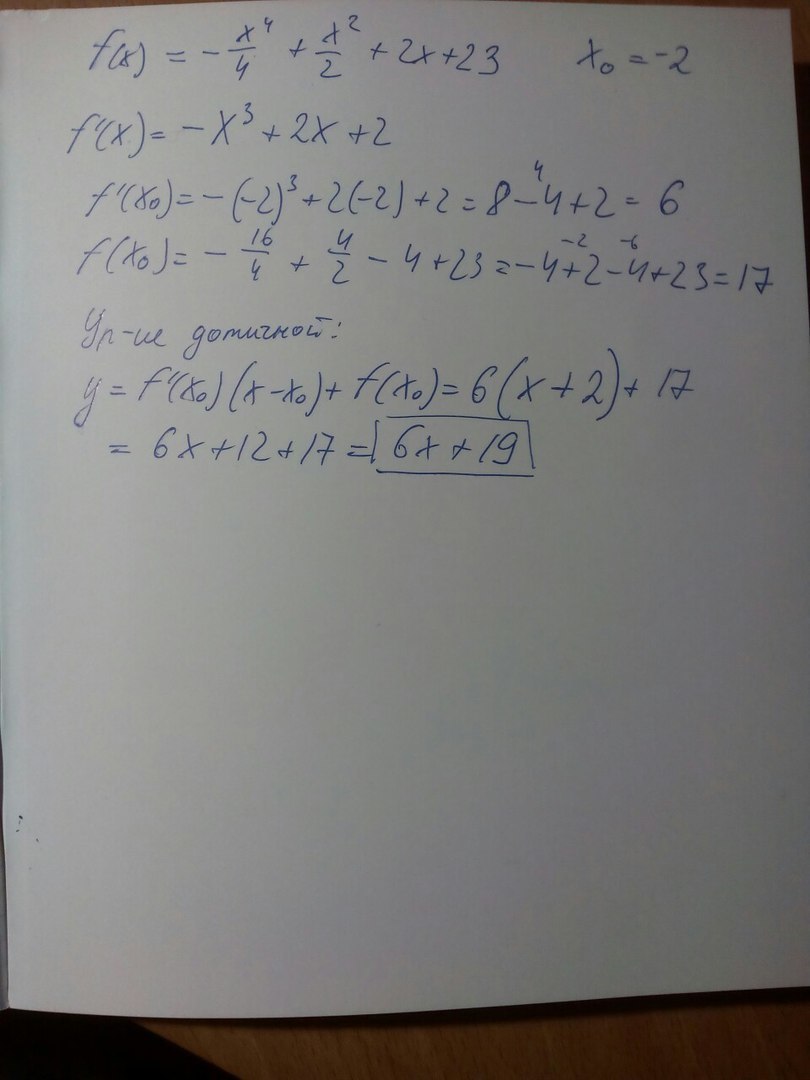 f(x) = -x⁴/4 + x²/2 + 2x+23 x₀ = -2
f'(x) = -x³ + 2x + 2
f'(x₀) = -(-2)³ + 2(-2) + 2 = 8 - 4 + 2 = 6 4
f(x₀) = -16/4 + 4/2 - 4 + 23 = -4+2-4+23 = 17 -2 -6
Ур-ие дотичной:
y = f'(x₀)(x-x₀) + f(x₀) = 6(x+2) + 17
= 6x+12+17 = 6x+19